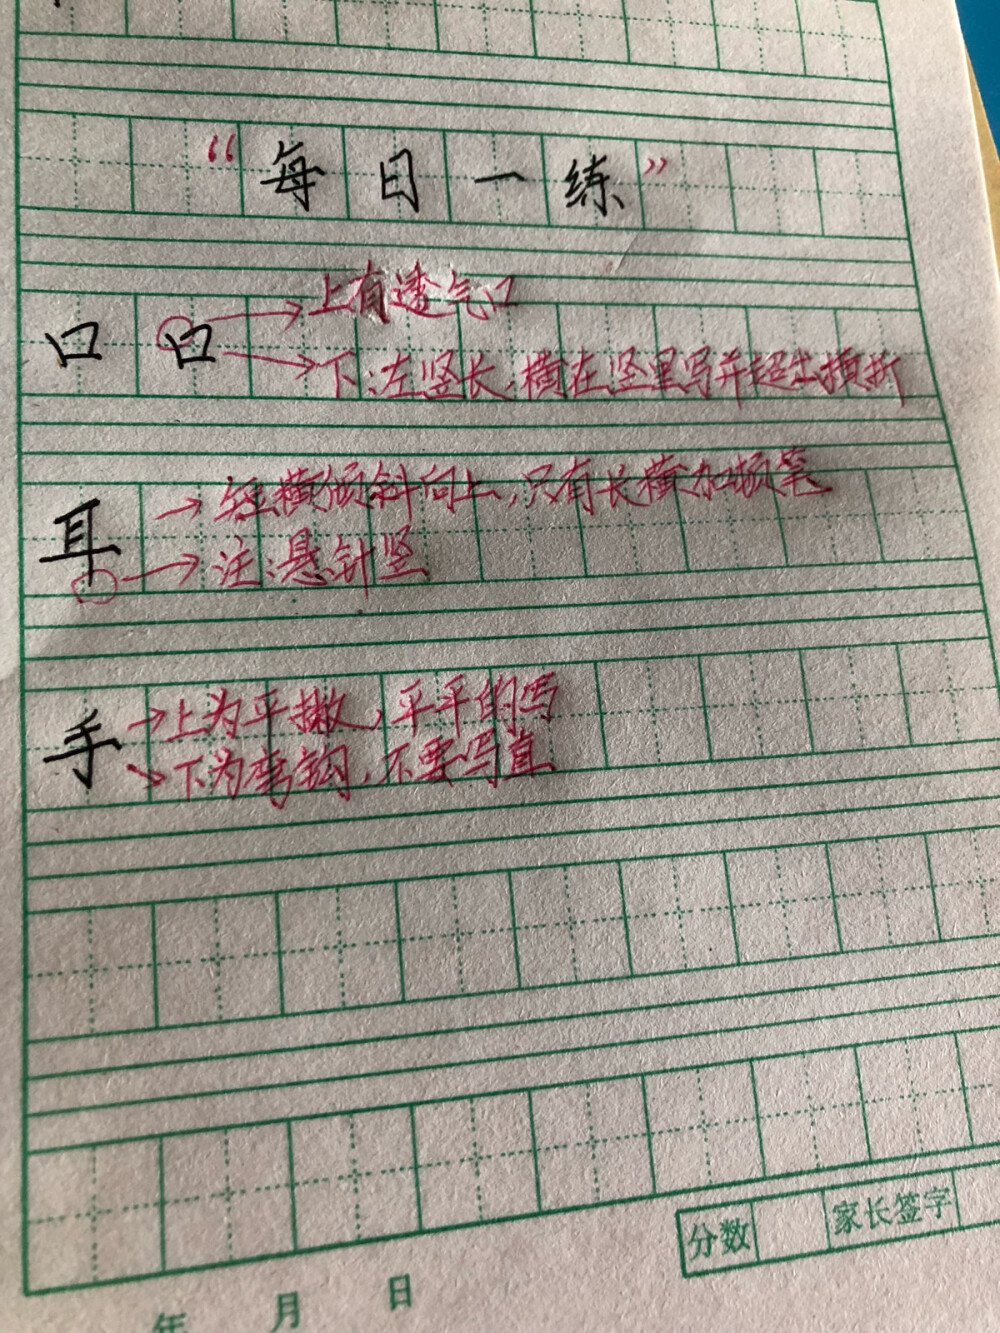 “每日一练”
口 口 →上有透气口
→下:左竖长,横在竖里写并超出横折
耳 →短横倾斜向上,只有长横加顿笔
→注:悬针竖
手 →上为平撇,平平的写
→下为弯钩,不要写直
分数 家长签字
年 月 日